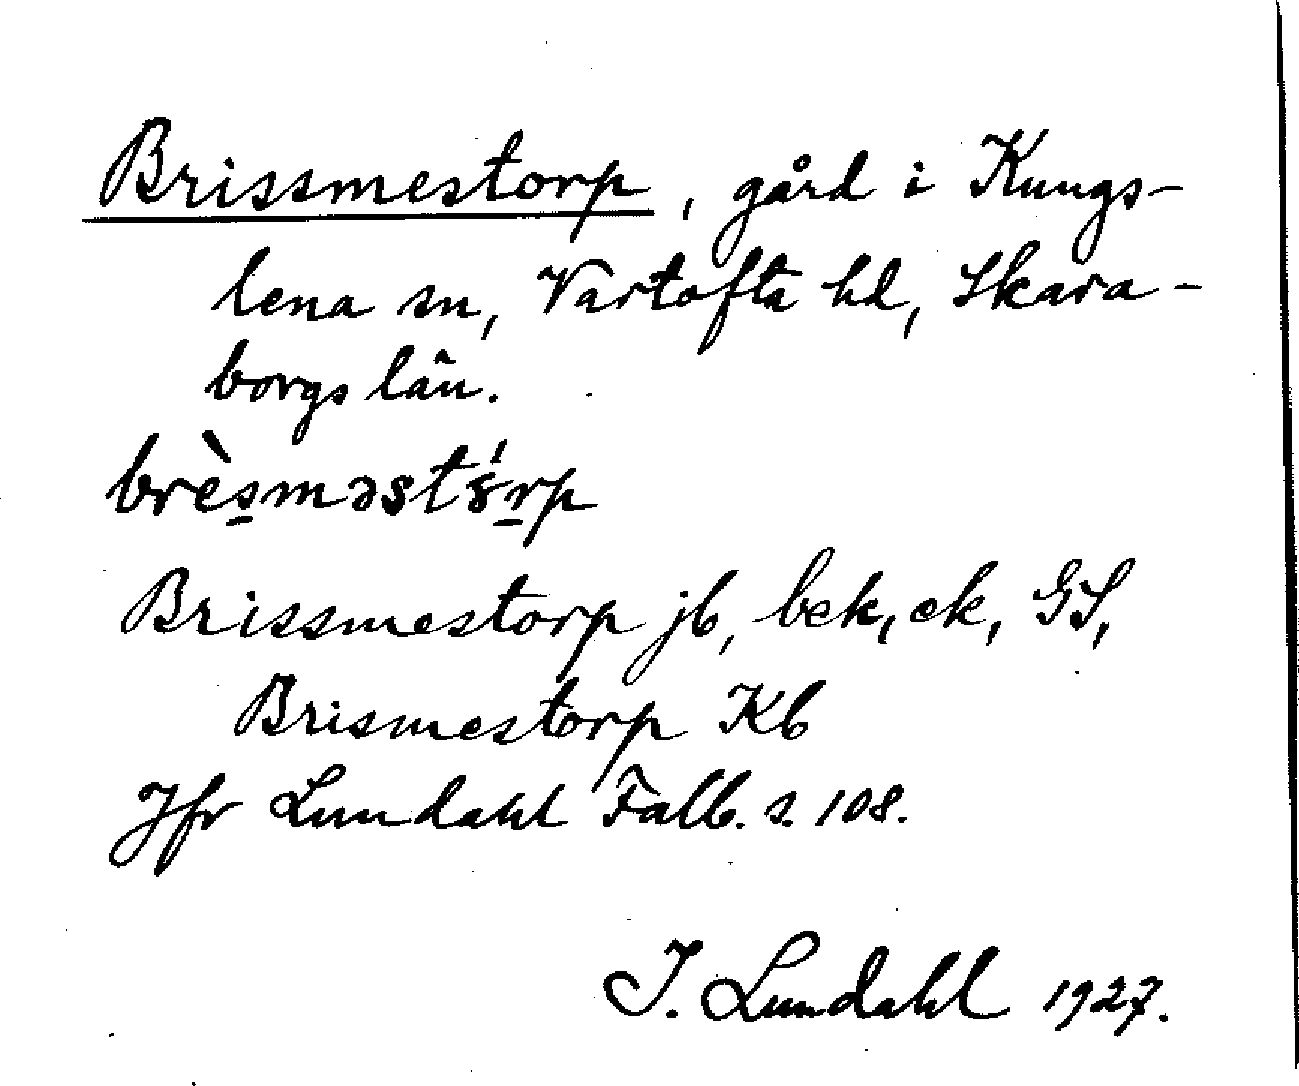 Brissmestorp, gård i Kungs-
lena sn, Vartofta hd, Skara-
borgs län.
brèsməst
Brissmestorp jb, bek, ek, GS,
Brismestorp Kb
Jfr Lundahl Falb. s. 108.
I. Lundahl 1927.